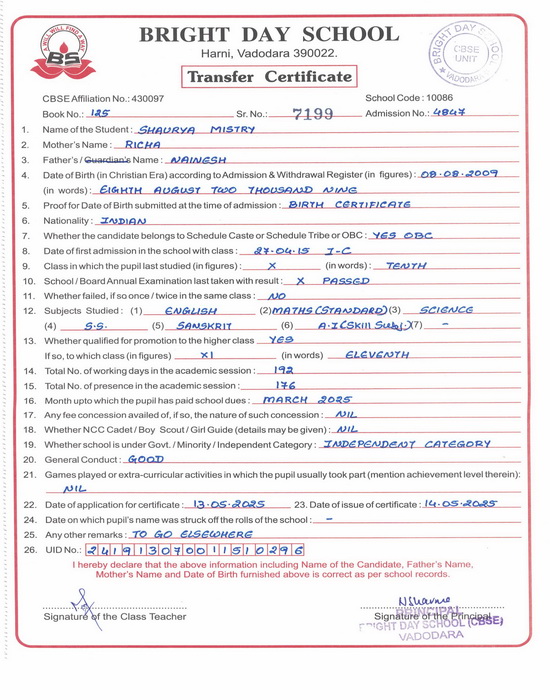 A WILL WILL FIND A WAY
BS
BRIGHT DAY SCHOOL
Harni, Vadodara 390022.
Transfer Certificate
BRIGHT DAY SCHOOL
CBSE
UNIT
VADODARA
CBSE Affiliation No.: 430097 School Code : 10086
Book No.: 125 Sr. No.: 7199 Admission No.: 4847
1. Name of the Student : SHAURYA MISTRY
2. Mother's Name : RICHA
3. Father's / Guardian's Name : NAINESH
4. Date of Birth (in Christian Era) according to Admission & Withdrawal Register (in figures) : 08-08-2009
(in words) : EIGHTH AUGUST TWO THOUSAND NINE
5. Proof for Date of Birth submitted at the time of admission : BIRTH CERTIFICATE
6. Nationality : INDIAN
7. Whether the candidate belongs to Schedule Caste or Schedule Tribe or OBC : YES OBC
8. Date of first admission in the school with class : 27-04-15 I-C
9. Class in which the pupil last studied (in figures) : X (in words) : TENTH
10. School / Board Annual Examination last taken with result : X PASSED
11. Whether failed, if so once / twice in the same class : NO
12. Subjects Studied : (1) ENGLISH (2) MATHS (STANDARD) (3) SCIENCE
(4) S.S. (5) SANSKRIT (6) A.I (SKIll Subj.) (7) -
13. Whether qualified for promotion to the higher class YES
If so, to which class (in figures) XI (in words) ELEVENTH
14. Total No. of working days in the academic session : 192
15. Total No. of presence in the academic session : 176
16. Month upto which the pupil has paid school dues : MARCH 2025
17. Any fee concession availed of, if so, the nature of such concession : NIL
18. Whether NCC Cadet / Boy Scout / Girl Guide (details may be given) : NIL
19. Whether school is under Govt. / Minority / Independent Category : INDEPENDENT CATEGORY
20. General Conduct : GOOD
21. Games played or extra-curricular activities in which the pupil usually took part (mention achievement level therein):
NIL
22. Date of application for certificate : 13-05-2025 23. Date of issue of certificate : 14-05-2025
24. Date on which pupil's name was struck off the rolls of the school : -
25. Any other remarks : TO GO ELSEWHERE
26. UID No.: 241913070011510296
I hereby declare that the above information including Name of the Candidate, Father's Name,
Mother's Name and Date of Birth furnished above is correct as per school records.
NSharma
Signature of the Class Teacher Signature of the Principal
PRINCIPAL
BRIGHT DAY SCHOOL (CBSE)
VADODARA